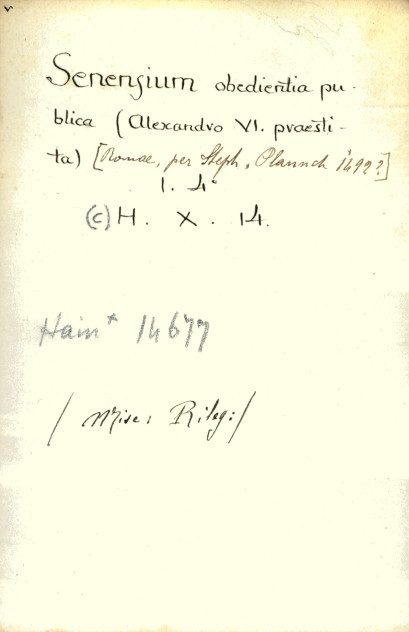 Senensium obedientia pu-
blica (Alexandro VI. praesti-
ta) [Romae, per Steph. Plannck 1492?]
I. 4°
(c) H. X. 14.
Hain* 14677
/ Misc: Rileg: /